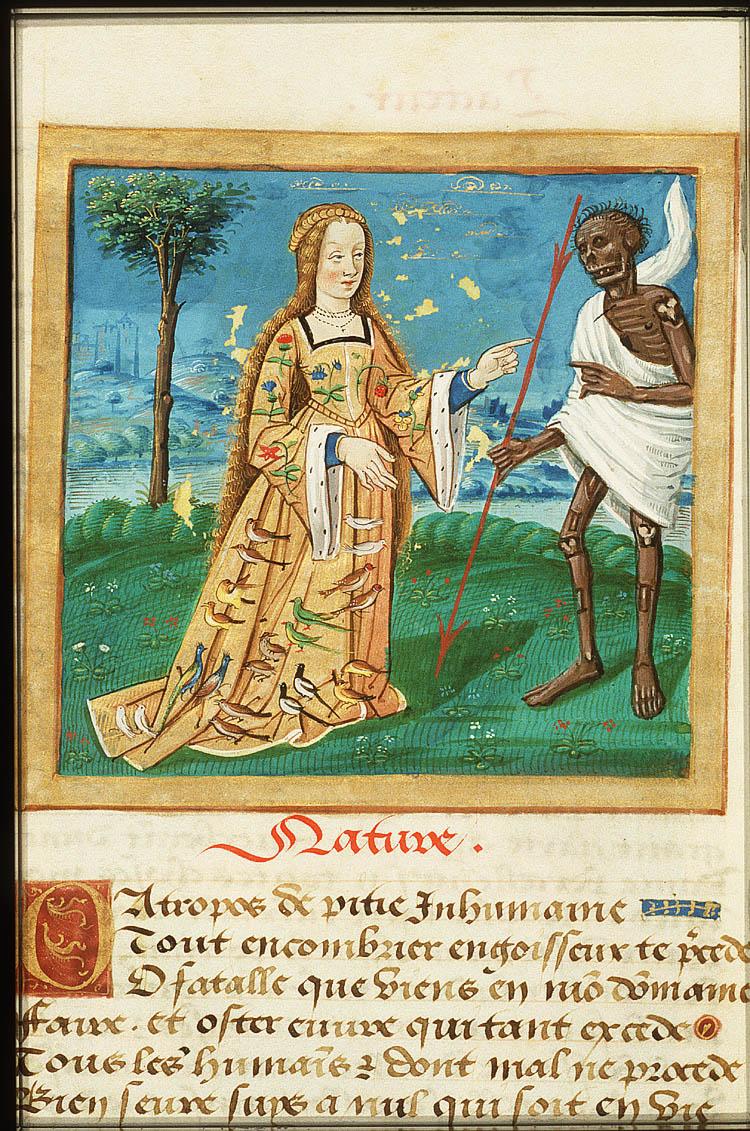 Nature.
O Atropos de pitie Inhumaine
Tout encombrier engoisseux te p̃cede
O fatalle que viens en mõ dõmaine
ffaire. et oster euure qui tant excede
Tous les humaĩs ⁊ dont mal ne procede
Bien seure suys a nul qui soit en vie